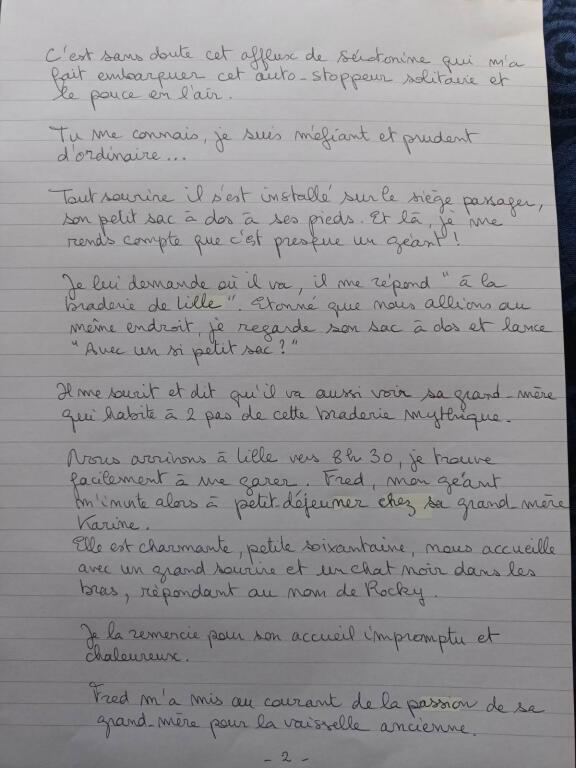 C'est sans doute cet afflux de sérotonine qui m'a
fait embarquer cet auto-stoppeur solitaire et
le pouce en l'air.
Tu me connais, je suis méfiant et prudent
d'ordinaire...
Tout sourire il s'est installé sur le siège passager,
son petit sac à dos à ses pieds. Et là, je me
rends compte que c'est presque un géant !
Je lui demande où il va, il me répond " à la
braderie de lille ". Etonné que nous allions au
même endroit, je regarde son sac à dos et lance
" Avec un si petit sac ? "
Il me sourit et dit qu'il va aussi voir sa grand-mère
qui habite à 2 pas de cette braderie mythique.
Nous arrivons à lille vers 8h 30, je trouve
facilement à me garer. Fred, mon géant
m'invite alors à petit-déjeuner chez sa grand-mère
Karine.
Elle est charmante, petite soixantaine, nous accueille
avec un grand sourire et un chat noir dans les
bras, répondant au nom de Rocky.
Je la remercie pour son accueil impromptu et
chaleureux.
Fred m'a mis au courant de la passion de sa
grand-mère pour la vaisselle ancienne.
- 2 -